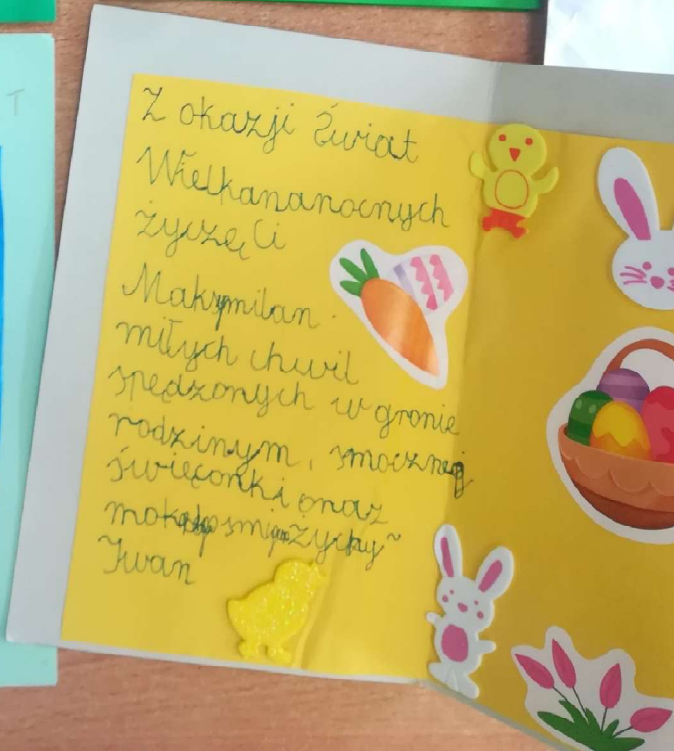 Z okazji Świat
Wielkananocnych
życzę Ci
Maksymilan
miłych chwil
spędzonych w gronie
rodzinym, smocznej
święconki oraz
Iwan
T